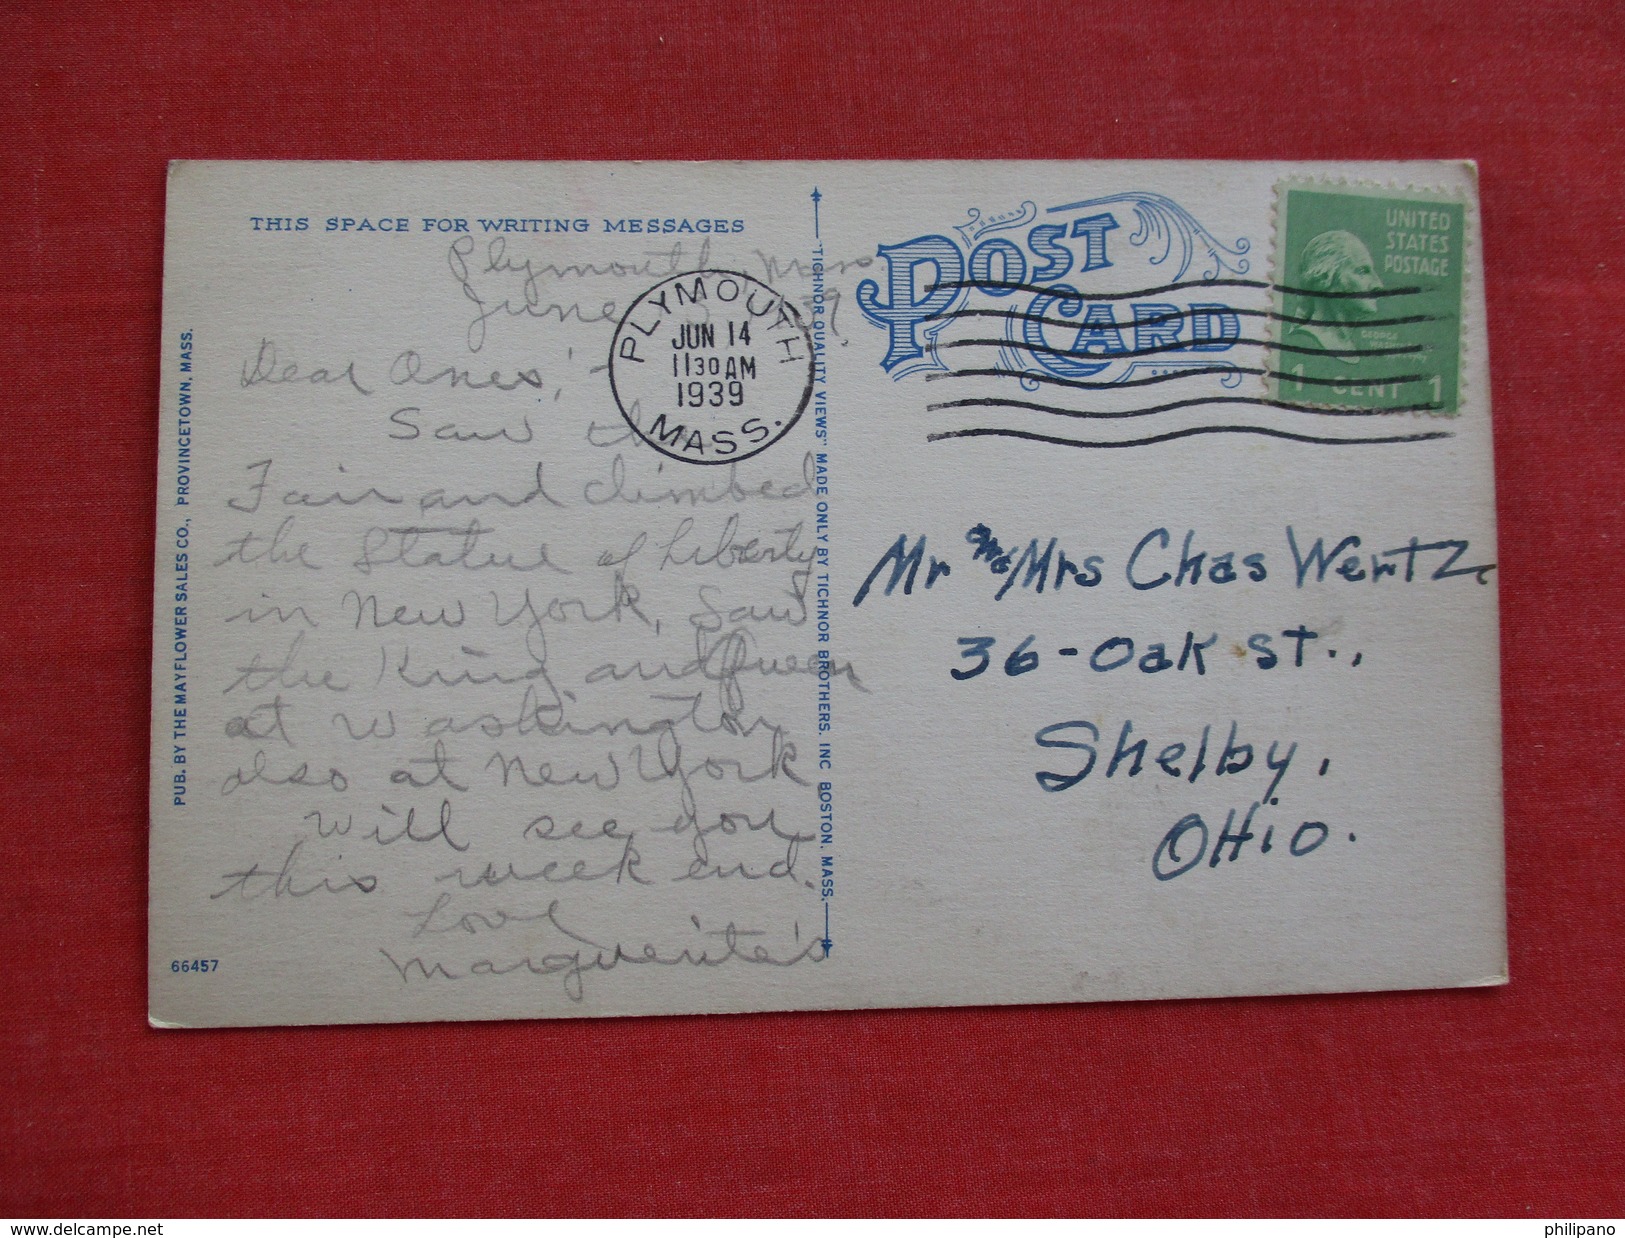 THIS SPACE FOR WRITING MESSAGES
Plymouth, Mass.
June 39.
Dear Ones,
Saw the
Fair and climbed
the Statue of Liberty
in New York, Saw
the King and Queen
at Washington
also at New York
Will see you
this week end.
Love
Marguerite's
PLYMOUTH
JUN 14
11 30 AM
1939
MASS.
PUB. BY THE MAYFLOWER SALES CO., PROVINCETOWN, MASS.
66457
"TICHNOR QUALITY VIEWS" MADE ONLY BY TICHNOR BROTHERS, INC BOSTON, MASS.
POST
CARD
UNITED
STATES
POSTAGE
GEORGE
WASHINGTON
1 CENT 1
Mr and Mrs Chas Wertz
36-Oak St.,
Shelby,
OHio.
delcampe.net
philipano